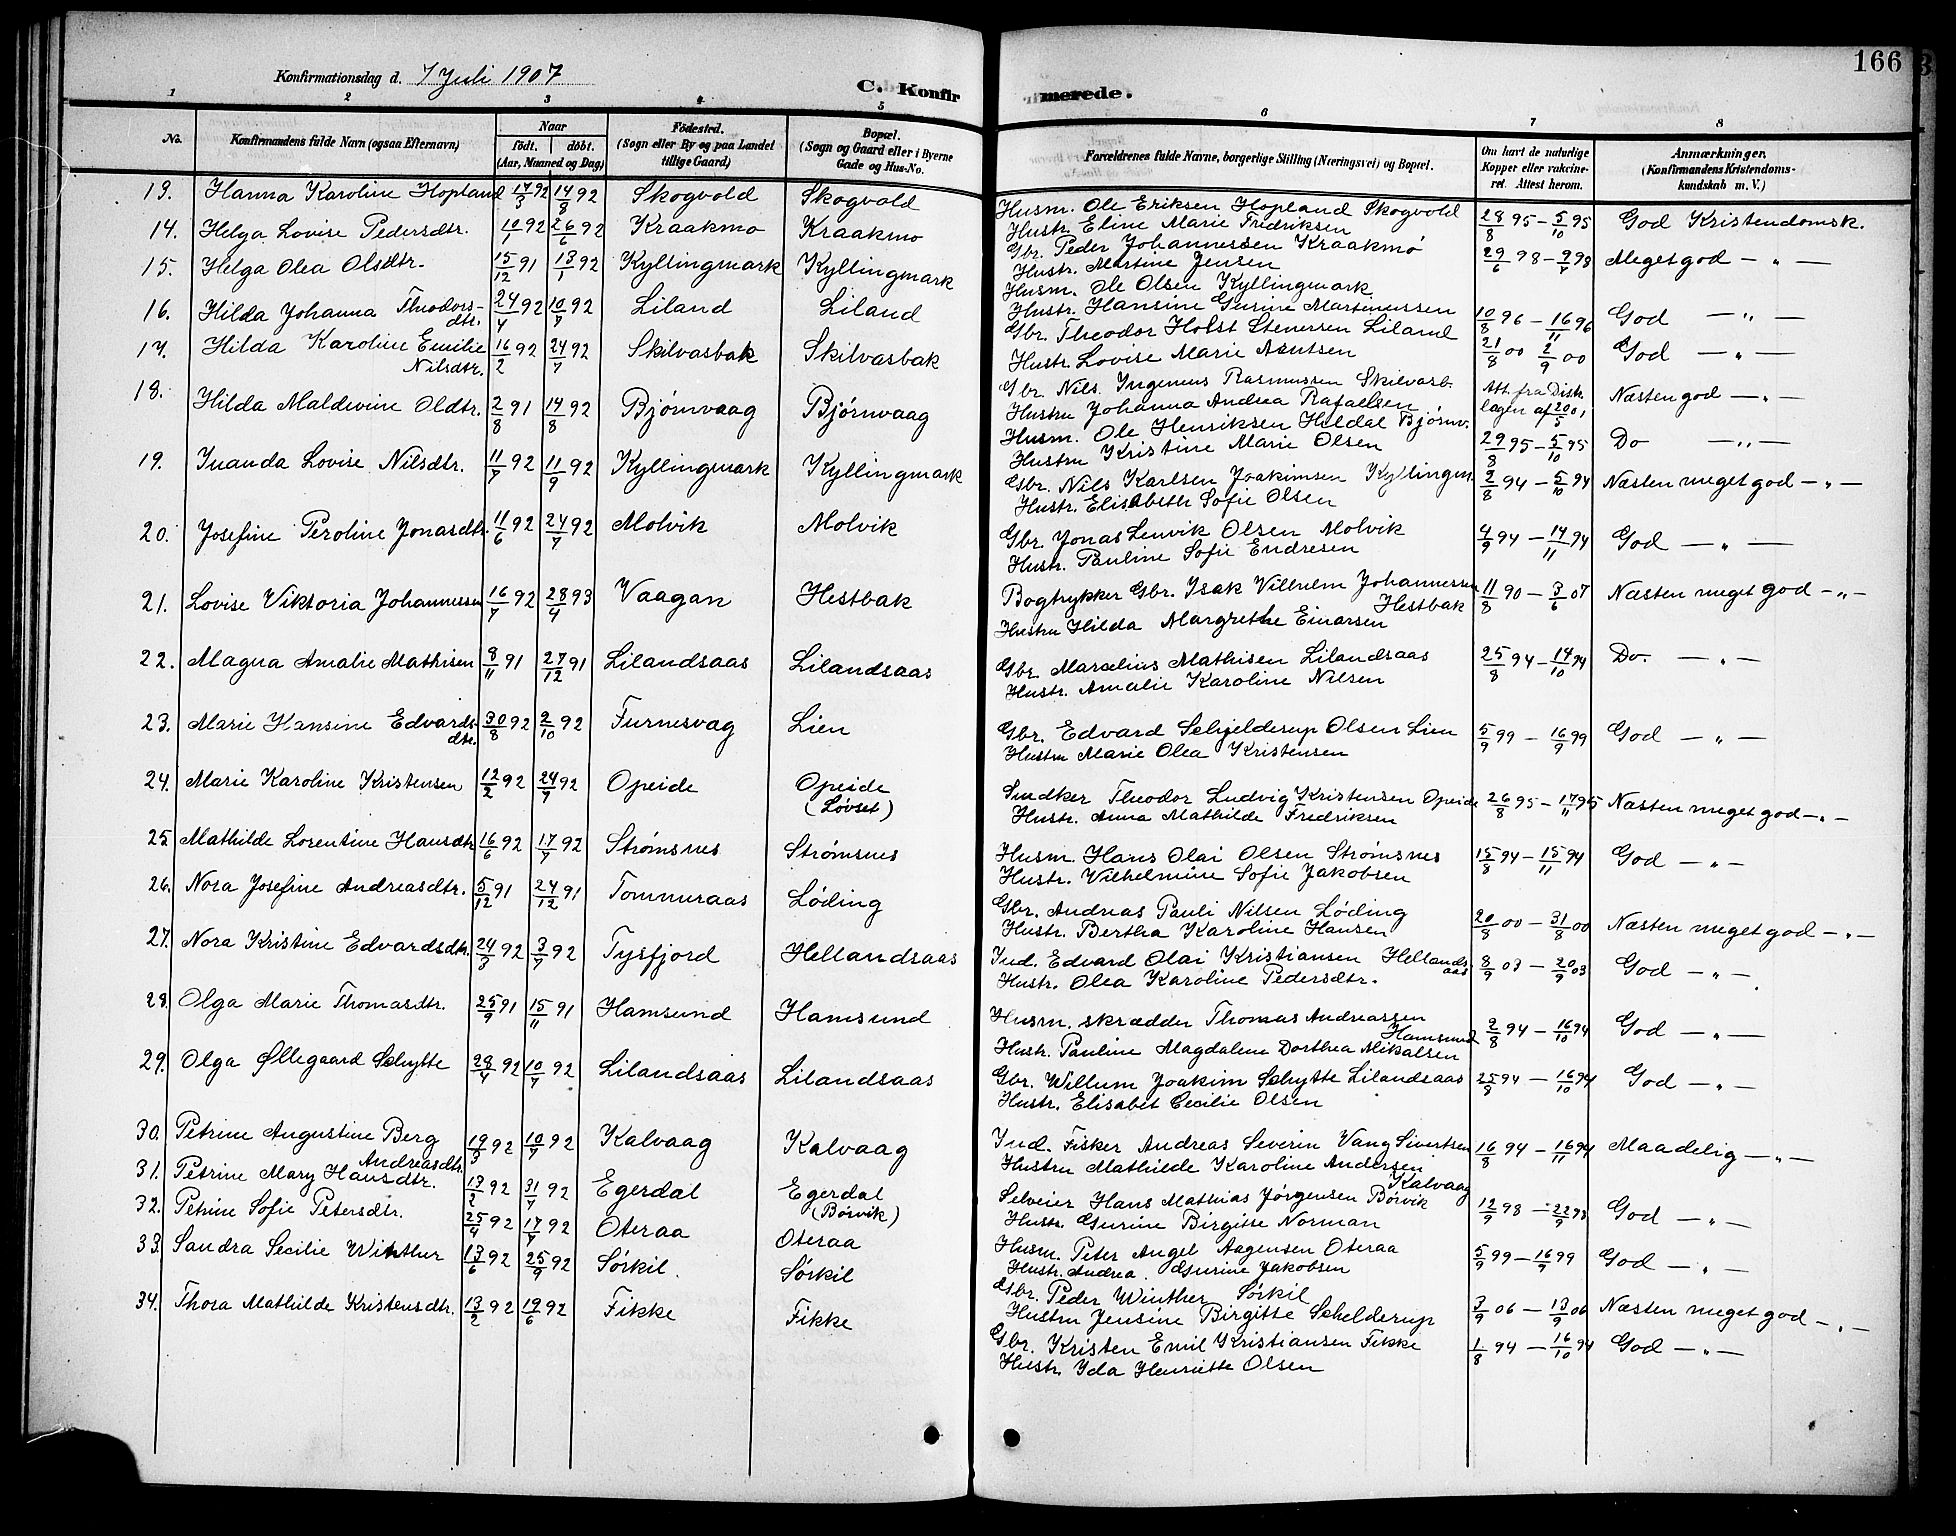 166
Konfirmationsdag d. 7 Juli 1907
C. Konfirmerede.
1 2 3 4 5 6 7 8
No. Konfirmandens fulde Navn (ogsaa Efternavn) Naar født. døbt. (Aar, Maaned og Dag) Fødested. (Sogn eller By og paa Landet tillige Gaard) Bopæl. (Sogn og Gaard eller i Byerne Gade og Hus-No. Forældrenes fulde Navne, borgerlige Stilling (Næringsvei) og Bopæl. Om havt de naturlige Kopper eller vakcineret. Attest herom. Anmærkninger. (Konfirmandens Kristendomskundskab m. V.)
13. Hanna Karoline Hopland 17/3 92 14/8 92 Skogvold Skogvold
Husm. Ole Eriksen Hopland Skogvold
Hustr. Eline Marie Fredriksen 28/8 95 – 5/10 95 God Kristendomsk.
14. Helga Lovise Pedersdtr. 10/1 92 26/6 92 Kraakmo Kraakmo
Gbr. Peder Johannessen Kraakmo
Hustr. Martine Jensen 29/6 98 – 9/7 98 Meget god – „ –
15. Helga Olea Olsdtr. 15/12 91 13/1 92 Kyllingmark Kyllingmark
Husm. Ole Olsen Kyllingmark
Hustr. Hansine Gurine Martinussen 10/8 96 – 16/11 96 God – „ –
16. Hilda Johanna Theodorsdtr. 24/4 92 10/7 92 Liland Liland
Gbr. Theodor Holst Stenersen Liland
Hustr. Lovise Marie Arntsen 21/8 00 2/9 00 God – „ –
17. Hilda Karoline Emilie Nilsdtr. 16/2 92 24/7 92 Skilvasbak Skilvasbak
Gbr. Nils Ingenius Rasmussen Skilvasb.
Hustru Johanna Andrea Rafaelsen Att. fra Distr. lægen af 20/5 Næsten god – „ –
18. Hilda Maldevine Oldtr. 2/8 91 14/8 92 Bjørnvaag Bjørnvaag
Husm. Ole Henriksen Heldal Bjørnv.
Hustru Kristine Marie Olsen 29/8 95 – 5/10 95 Do – „ –
19. Inanda Lovise Nilsdtr. 11/7 92 11/9 92 Kyllingmark Kyllingmark
Gbr. Nils Karlsen Joakimsen Kyllingm.
Hustr. Elisabeth Sofie Olsen 2/8 94 – 5/10 94 Næsten meget god – „ –
20. Josefine Peroline Jonasdtr. 11/6 92 24/7 92 Molvik Molvik
Gbr. Jonas Lenvik Olsen Molvik
Hustr. Pauline Sofie Endresen 4/9 94 – 14/11 94 God – „ –
21. Lovise Viktoria Johannessen 16/7 92 28/4 93 Vaagan Hestbak
Bogtrykker Gbr. Isak Vilhelm Johannessen Hestbak
Hustru Hilda Margrethe Einarsen 11/8 90 – 3/6 07 Næsten meget god – „ –
22. Magna Amalie Mathisen 8/11 91 27/12 91 Lilandsaas Lilandsaas
Gbr. Marcelius Mathisen Lilandsaas
Hustr. Amalie Karoline Nilsen 25/8 94 – 14/10 94 Do. – „ –
23. Marie Hansine Edvardsdtr. 30/8 92 2/10 92 Furnesvag Lien
Gbr. Edvard Schjelderup Olsen Lien
Hustru Marie Olea Kristensen 5/9 99 – 16/9 99 God – „ –
24. Marie Karoline Kristensen 12/2 92 24/7 92 Opeide Opeide (Løvset)
Snedker Theodor Ludvig Kristensen Opeide
Hustr. Anna Mathilde Fredriksen 26/8 95 – 17/11 95 Næsten meget god – „ –
25. Mathilde Lorentine Hansdtr. 16/6 92 17/7 92 Strømsnes Strømsnes
Husm. Hans Olai Olsen Strømsnes
Hustr. Wilhelmine Sofie Jakobsen 15/8 94 – 15/11 94 God – „ –
26. Nora Josefine Andreasdtr. 5/12 91 24/12 91 Tommeraas Løding
Gbr. Andreas Pauli Nilsen Løding
Hustr. Bertha Karoline Hansen 20/8 00 – 31/8 00 Næsten meget god – „ –
27. Nora Kristine Edvardsdtr. 24/3 92 3/7 92 Tysfjord Hellandsaas
Ind. Edvard Olai Kristiansen Hellandsaas
Hustr. Olea Karoline Pedersdtr. 8/9 03 – 20/9 03 God – „ –
28. Olga Marie Thomasdtr. 25/9 91 15/11 91 Hamsund Hamsund
Husm. skrædder Thomas Andreassen Hamsund
Hustr. Pauline Magdalene Dorthea Mikalsen 2/8 94 – 16/10 94 God – „ –
29. Olga Øllegaard Schytte 28/4 92 10/7 92 Lilandsaas Lilandsaas
Gbr. Willum Joakim Schytte Lilandsaas
Hustr. Elisabet Cecilie Olsen 25/8 94 – 16/10 94 God – „ –
30. Petrine Augustine Berg Andreasdtr. 19/3 92 10/7 92 Kalvaag Kalvaag
Ind. Fisker Andreas Severin Vang Sivertsen
Hustru Mathilde Karoline Andersen Kalvaag 16/8 94 – 16/11 94 Maadelig – „ –
31. Petrine Mary Hansdtr. 13/2 92 31/7 92 Egerdal Egerdal (Børvik)
Selveier Hans Mathias Jørgensen Børvik
Hustr. Gurine Birgitte Norman 12/9 98 – 22/9 98 God – „ –
32. Petrine Sofie Petersdtr. 25/4 92 17/7 92 Oteraa Oteraa
Husm. Peter Angel Aagensen Oteraa
Hustr. Andrea Gurine Jakobsen 5/9 99 – 16/9 99 God – „ –
33. Sandra Secilie Winther 13/6 92 25/9 92 Sørkil Sørkil
Gbr. Peder Winther Sørkil
Hustru Jensine Birgitte Schelderup 3/9 06 – 13/9 06 Næsten meget god – „ –
34. Thora Mathilde Kristensdtr. 13/2 92 19/6 92 Fikke Fikke
Gbr. Kristen Emil Kristiansen Fikke
Hustr. Ida Henriette Olsen 1/8 94 – 16/10 94 God – „ –